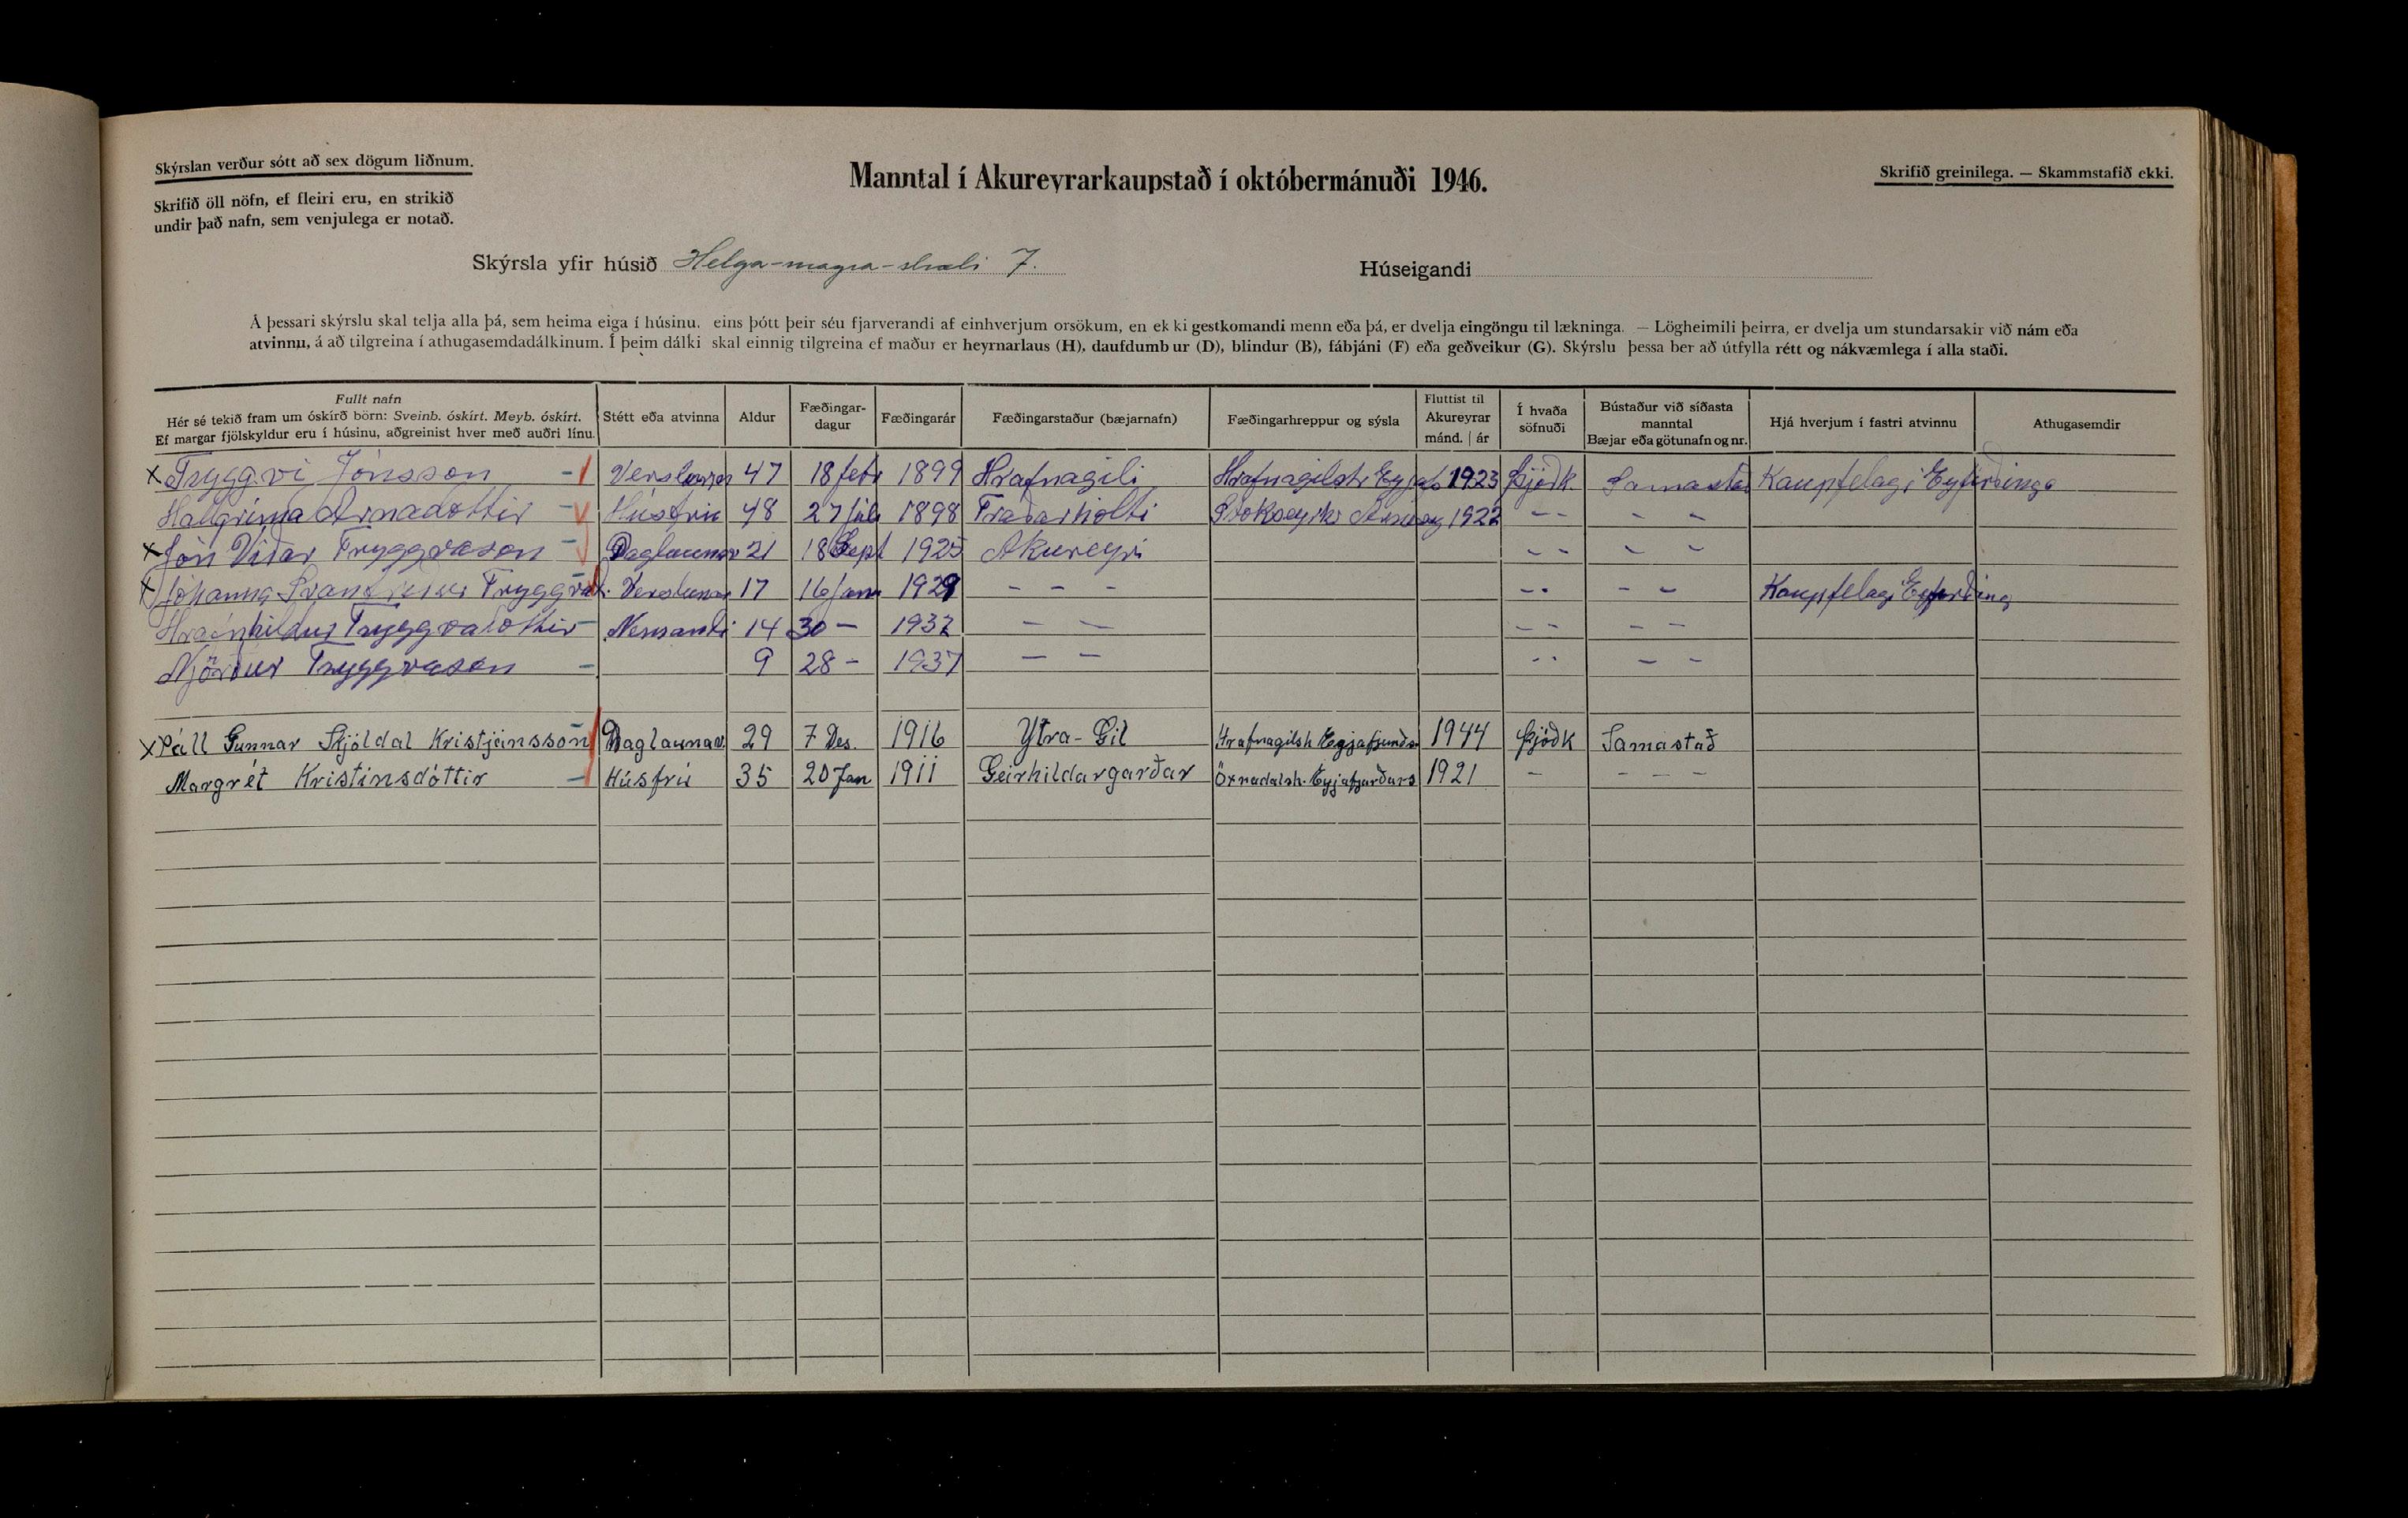 Skýrslan verður sótt að sex dögum liðnum.
Skrifið öll nöfn, ef fleiri eru, en strikið
undir það nafn, sem venjulega er notað.
Manntal í Akureyrarkaupstað í októbermánuði 1946.
Skrifið greinilega. — Skammstafið ekki.
Skýrsla yfir húsið Helga-magra-stræti 7.
Húseigandi
Á þessari skýrslu skal telja alla þá, sem heima eiga í húsinu, eins þótt þeir séu fjarverandi af einhverjum orsökum, en ekki gestkomandi menn eða þá, er dvelja eingöngu til lækninga. — Lögheimili þeirra, er dvelja um stundarsakir við nám eða
atvinnu, á að tilgreina í athugasemdadálkinum. Í þeim dálki skal einnig tilgreina ef maður er heyrnarlaus (H), daufdumbur (D), blindur (B), fábjáni (F) eða geðveikur (G). Skýrslu þessa ber að útfylla rétt og nákvæmlega í alla staði.
Fullt nafn
Hér sé tekið fram um óskírð börn: Sveinb. óskírt. Meyb. óskírt.
Ef margar fjölskyldur eru í húsinu, aðgreinist hver með auðri línu.
Stétt eða atvinna
Aldur
Fæðingar-
dagur
Fæðingarár
Fæðingarstaður (bæjarnafn)
Fæðingarhreppur og sýsla
Fluttist til
Akureyrar
mánd. | ár
Í hvaða
söfnuði
Bústaður við síðasta
manntal
Bæjar eða götunafn og nr.
Hjá hverjum í fastri atvinnu
Athugasemdir
x Tryggvi Jónsson - 47 18 febr 1899 Hrafnagili Hrafnagilsh. 1923 Þjóðk. Samastað Kaupfelagi Eyfirðinga
Hallgríma Árnadóttir - Húsfrú 48 27 júlí 1898 Traðarholti 1922 - - - -
x Jón Viðar Tryggvason - Daglaunav 21 18 Sept 1925 Akureyri - - - -
x Jóhanna Tryggvad. 17 16 Jan 1929 - - - - - - - Kaupfelagi Eyfirðing
Hrafnhildur Tryggvadóttir - Nemandi 14 30 - 1932 - - - - - -
Njörður Tryggvason - 9 28 - 1937 - - - - - -
x Páll Gunnar Skjöldal Kristjánsson - Daglaunav. 29 7 Des. 1916 Ytra-Gil Hrafnagilsh 1944 Þjóðk Samastað
Margrét Kristinsdóttir - Húsfrú 35 20 Jan 1911 Geirhildargarðar Öxnadalsh. Eyjafjarðars 1921 - - - -